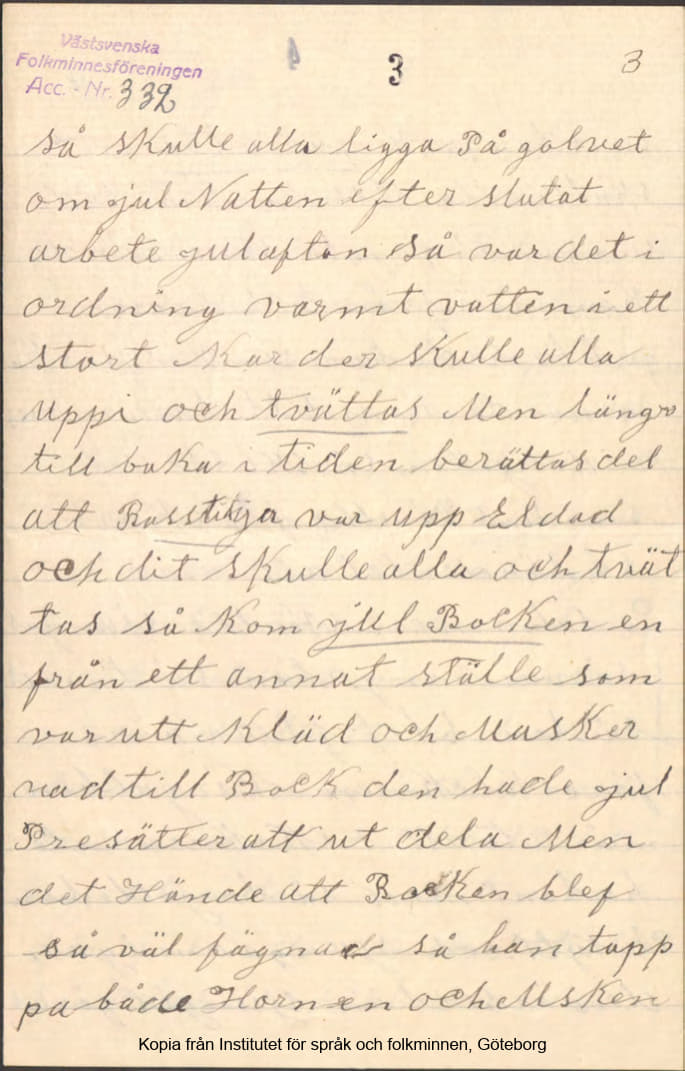 Västsvenska
Folkminnesföreningen
Acc. - Nr. 332
3
3
så skulle alla ligga På golvet
om jul Natten efter slutat
arbete julafton så var det i
ordning varmt vatten i ett
stort Kar der skulle alla
uppi och tvättas Men längr
till baka i tiden berättas det
att Basstugan var upp Eldad
och dit skulle alla och tvät
tas så Kom jul Bocken en
från ett annat ställe som
var utt Kläd och Masker
rad till Bock den hade jul
Presätter att ut dela Men
det Hände att Bocken blef
så väl fägnad så han tapp
pa både Hornen och Msken
Kopia från Institutet för språk och folkminnen, Göteborg